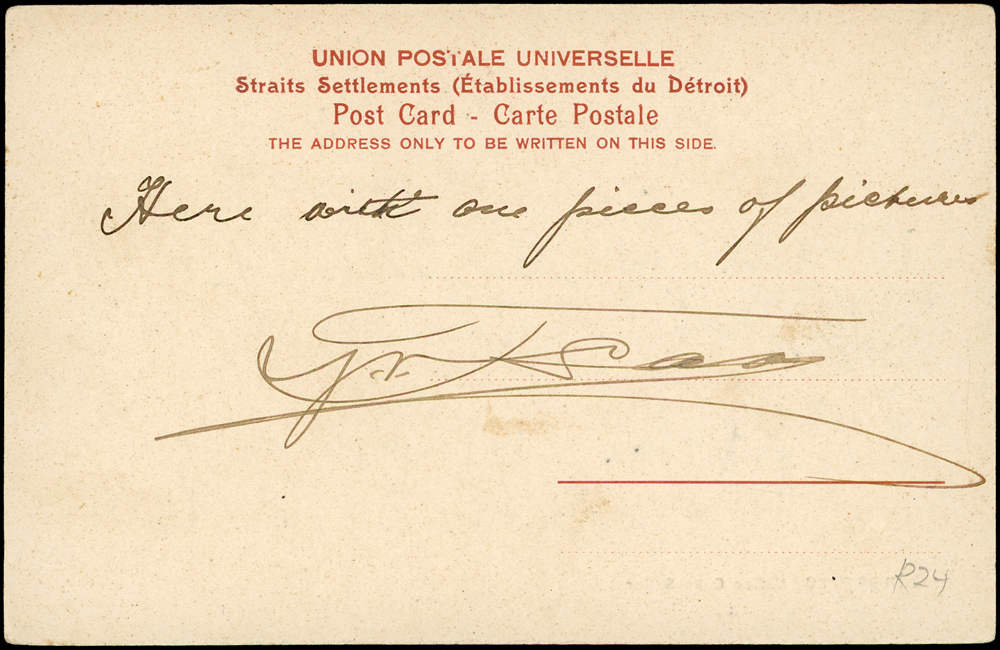 UNION POSTALE UNIVERSELLE
Straits Settlements (Établissements du Détroit)
Post Card - Carte Postale
THE ADDRESS ONLY TO BE WRITTEN ON THIS SIDE.
Here with one pieces of pictures
R24